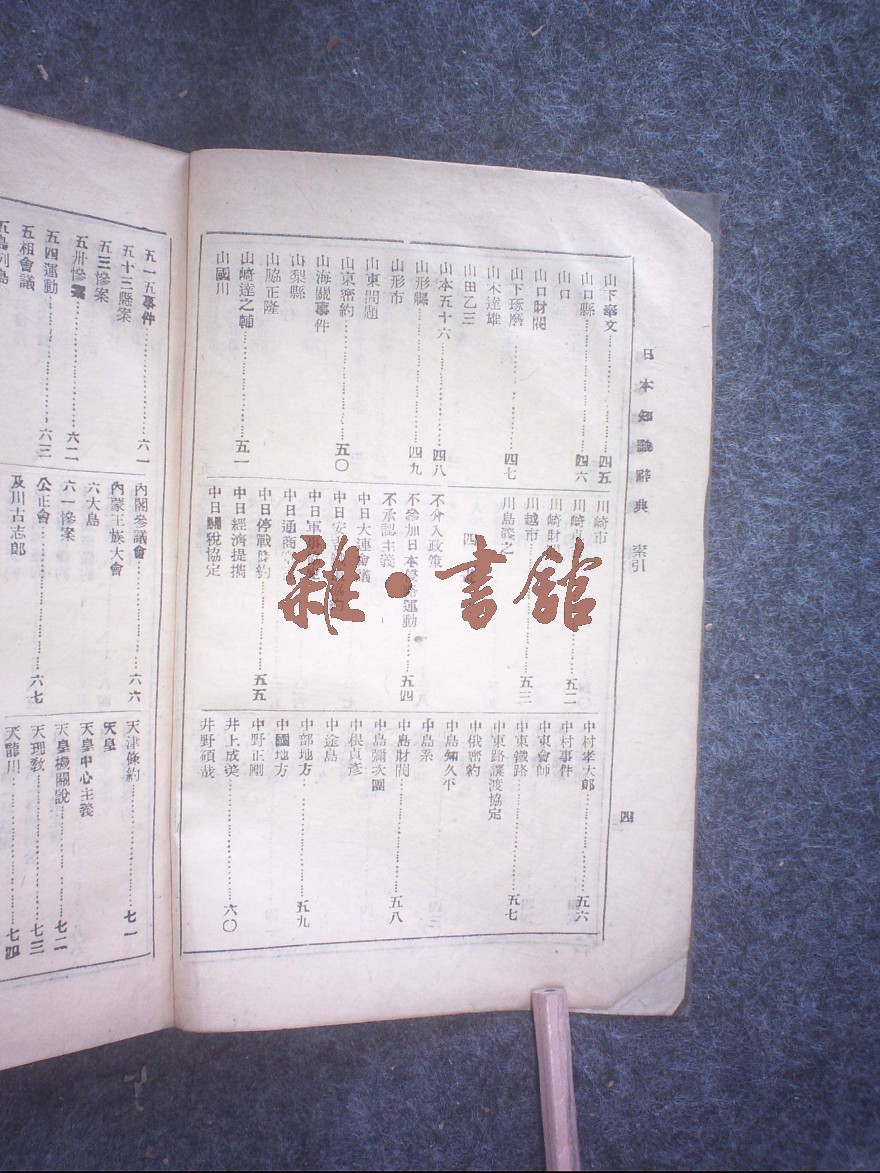 日本知識辭典 索引
四
山下奉文
山口縣……四五
山口……四六
山口財閥
山下琢磨
山木達雄……四七
山田乙三
山本五十六……四八
山形縣……四九
山形市
山東問題
山東密約……五〇
山海關事件
山梨縣
山脇正隆
山崎達之輔……五一
山國川
川崎市
川崎
川崎財
川越市……五三
川島義之
不介入政策
不參加日本侵略運動……五四
不承認主義
中日大連會議
中日
中日軍事
中日通商
中日停戰協約……五五
中日經濟提携
中日關稅協定
中村孝太郎……五六
中村事件
中東會師
中東鐵路……五七
中東路讓渡協定
中俄密約
中島知久平
中島系
中島財閥……五八
中島彌次團
中根貞彥
中途島
中部地方……五九
中國地方
中野正剛
井上成美……六〇
井野碩哉
五一五事件……六一
五十三縣案
五三慘案
五卅慘案……六二
五四運動……六三
五相會議
五島列島
內閣參議會……六六
內蒙王族大會
六大島
六一慘案
公正會……六七
及川古志郎
天津條約……七一
天皇
天皇中心主義
天皇機關說……七二
天理教……七三
天龍川……七四
雜·書館